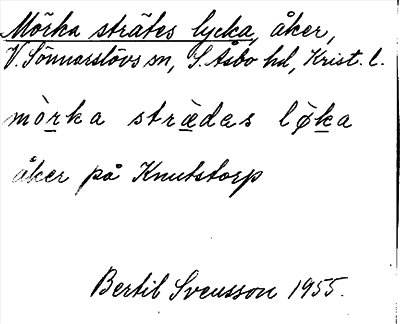 Mörka strätes lycka, åker,
V. Sönnarslövs sn, S. Åsbo hd, Krist. l.
mò̱rka stræ̱das lø̱ḵa
åker på Knutstorp
Bertil Svensson 1955.